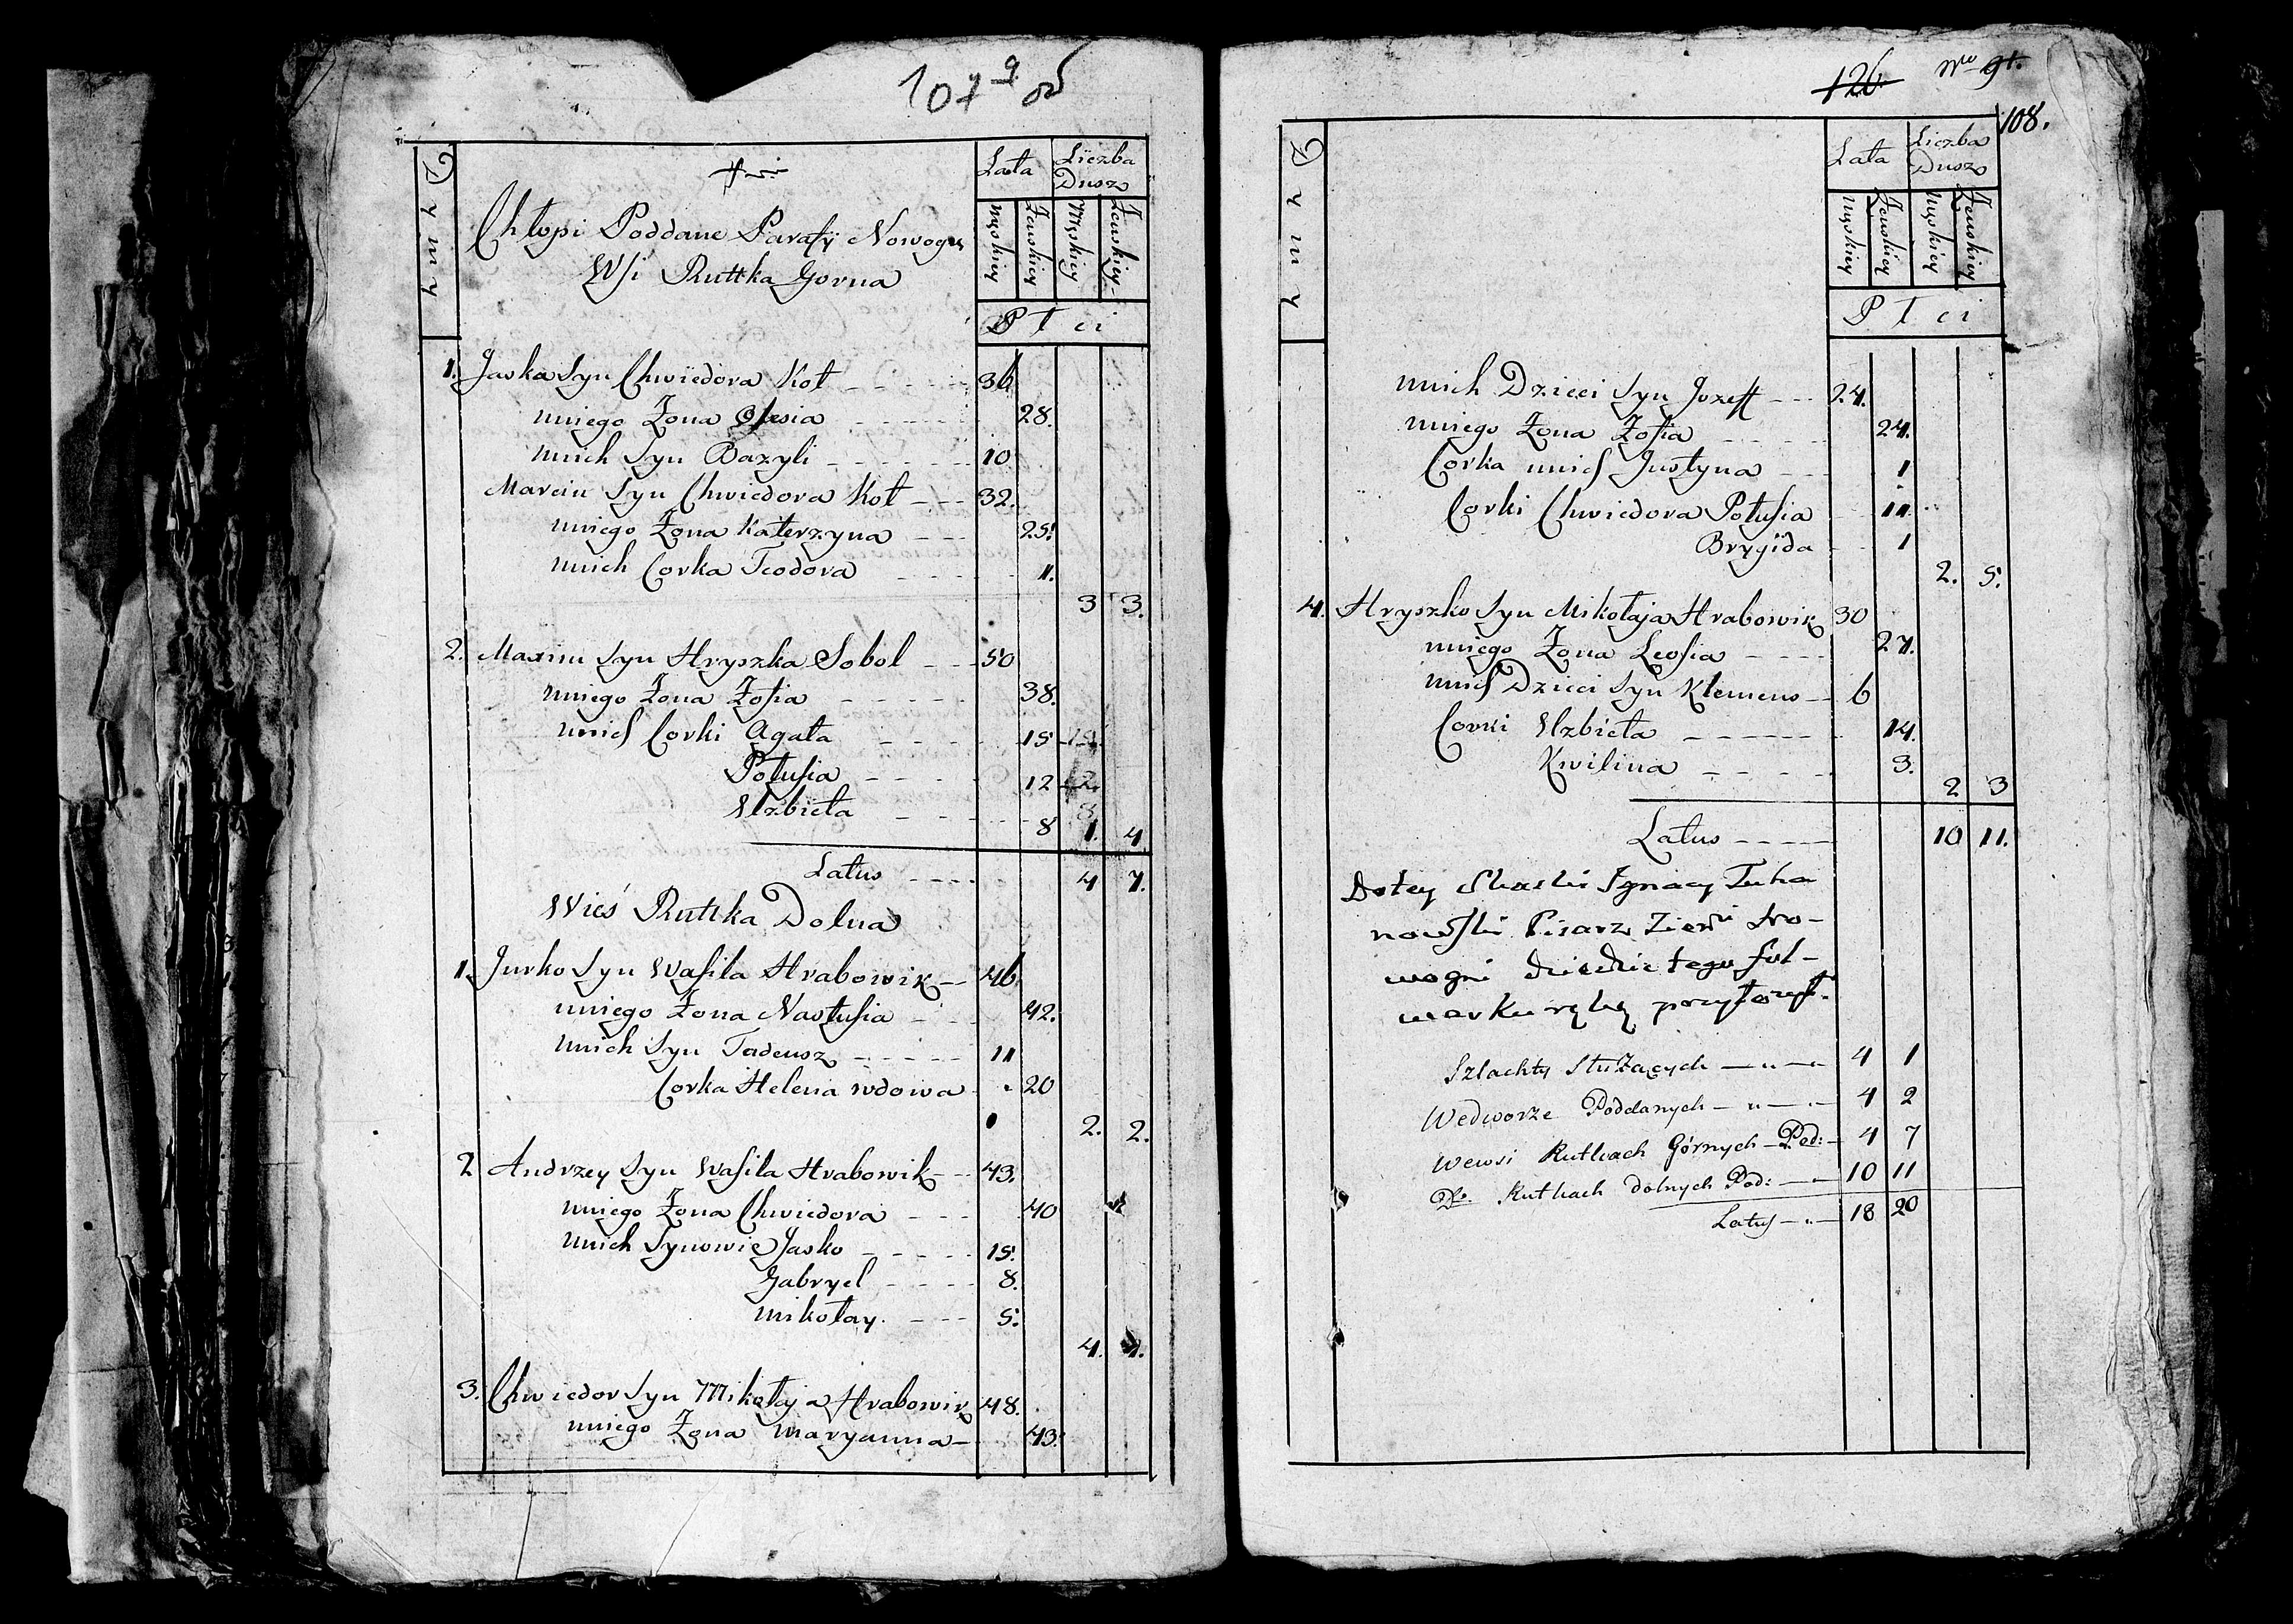 107 об
Dymy
Lata
Liczba Dusz
Męskiey Żeńskiey Męskiey Żeńskiey
Płci
Chłopi Poddane Parafÿ Nowogr
Wsi Ruttka Gorna
1. Jaśka Syn Chwiedora Kot 36
uniego Żona Olesia 28.
unich Syn Bazyli 10
Marcin Syn Chwiedora Kot 32.
uniego Żona Katerzyna 25.
unich Corka Teodora 1.
3 3.
2. Maxim Syn Hryszka Sobol 50
uniego Żona Zofia 38.
unich Corki Agata 15
Połusia 12
Elzbieta 8
1. 4
Latus 4 7.
Wieś Ruttka Dolna
1. Jurko Syn Wasila Hrabowik 46
uniego Żona Nastusia 42.
unich Syn Tadeusz 11
Corka Helena wdowa 20
2. 2.
2 Andrzey Syn Wasila Hrabowik 43.
uniego Żona Chwiedora 40
unich Synowie Jaśko 15.
Gabryel 8.
Mikołay 5.
4. 1.
3. Chwiedor Syn Mikołaja Hrabowik 48.
uniego Żona Maryanna 43.
126 Nro 91.
108.
Dymy
Lata
Liczba Dusz
Męskiey Żeńskiey Męskiey Żeńskiey
Płci
unich Dzieci Syn Jozeff 24.
uniego Żona Zofia 24.
Corka unich Justyna 1
Corki Chwiedora Połusia 11.
Brygida 1
2. 5.
4. Hryszko Syn Mikołaja Hrabowik 30
uniego Żona Leosia 27.
unich Dzieci Syn Klemens 6
Corki Elzbieta 14.
Kwilina 3.
2 3
Latus 10 11.
Do tey Skaski Ignacy Tuha
nowski Pisarz Ziem: Gro-
dziedzic tego fol-
warku rękę przyłożył.
Szlachty Służących 4 1
We dworze Poddanych 4 2
We wsi Rutkach Górnych Pod: 4 7
Do. Rutkach dolnych Pod: 10 11
Latus 18 20